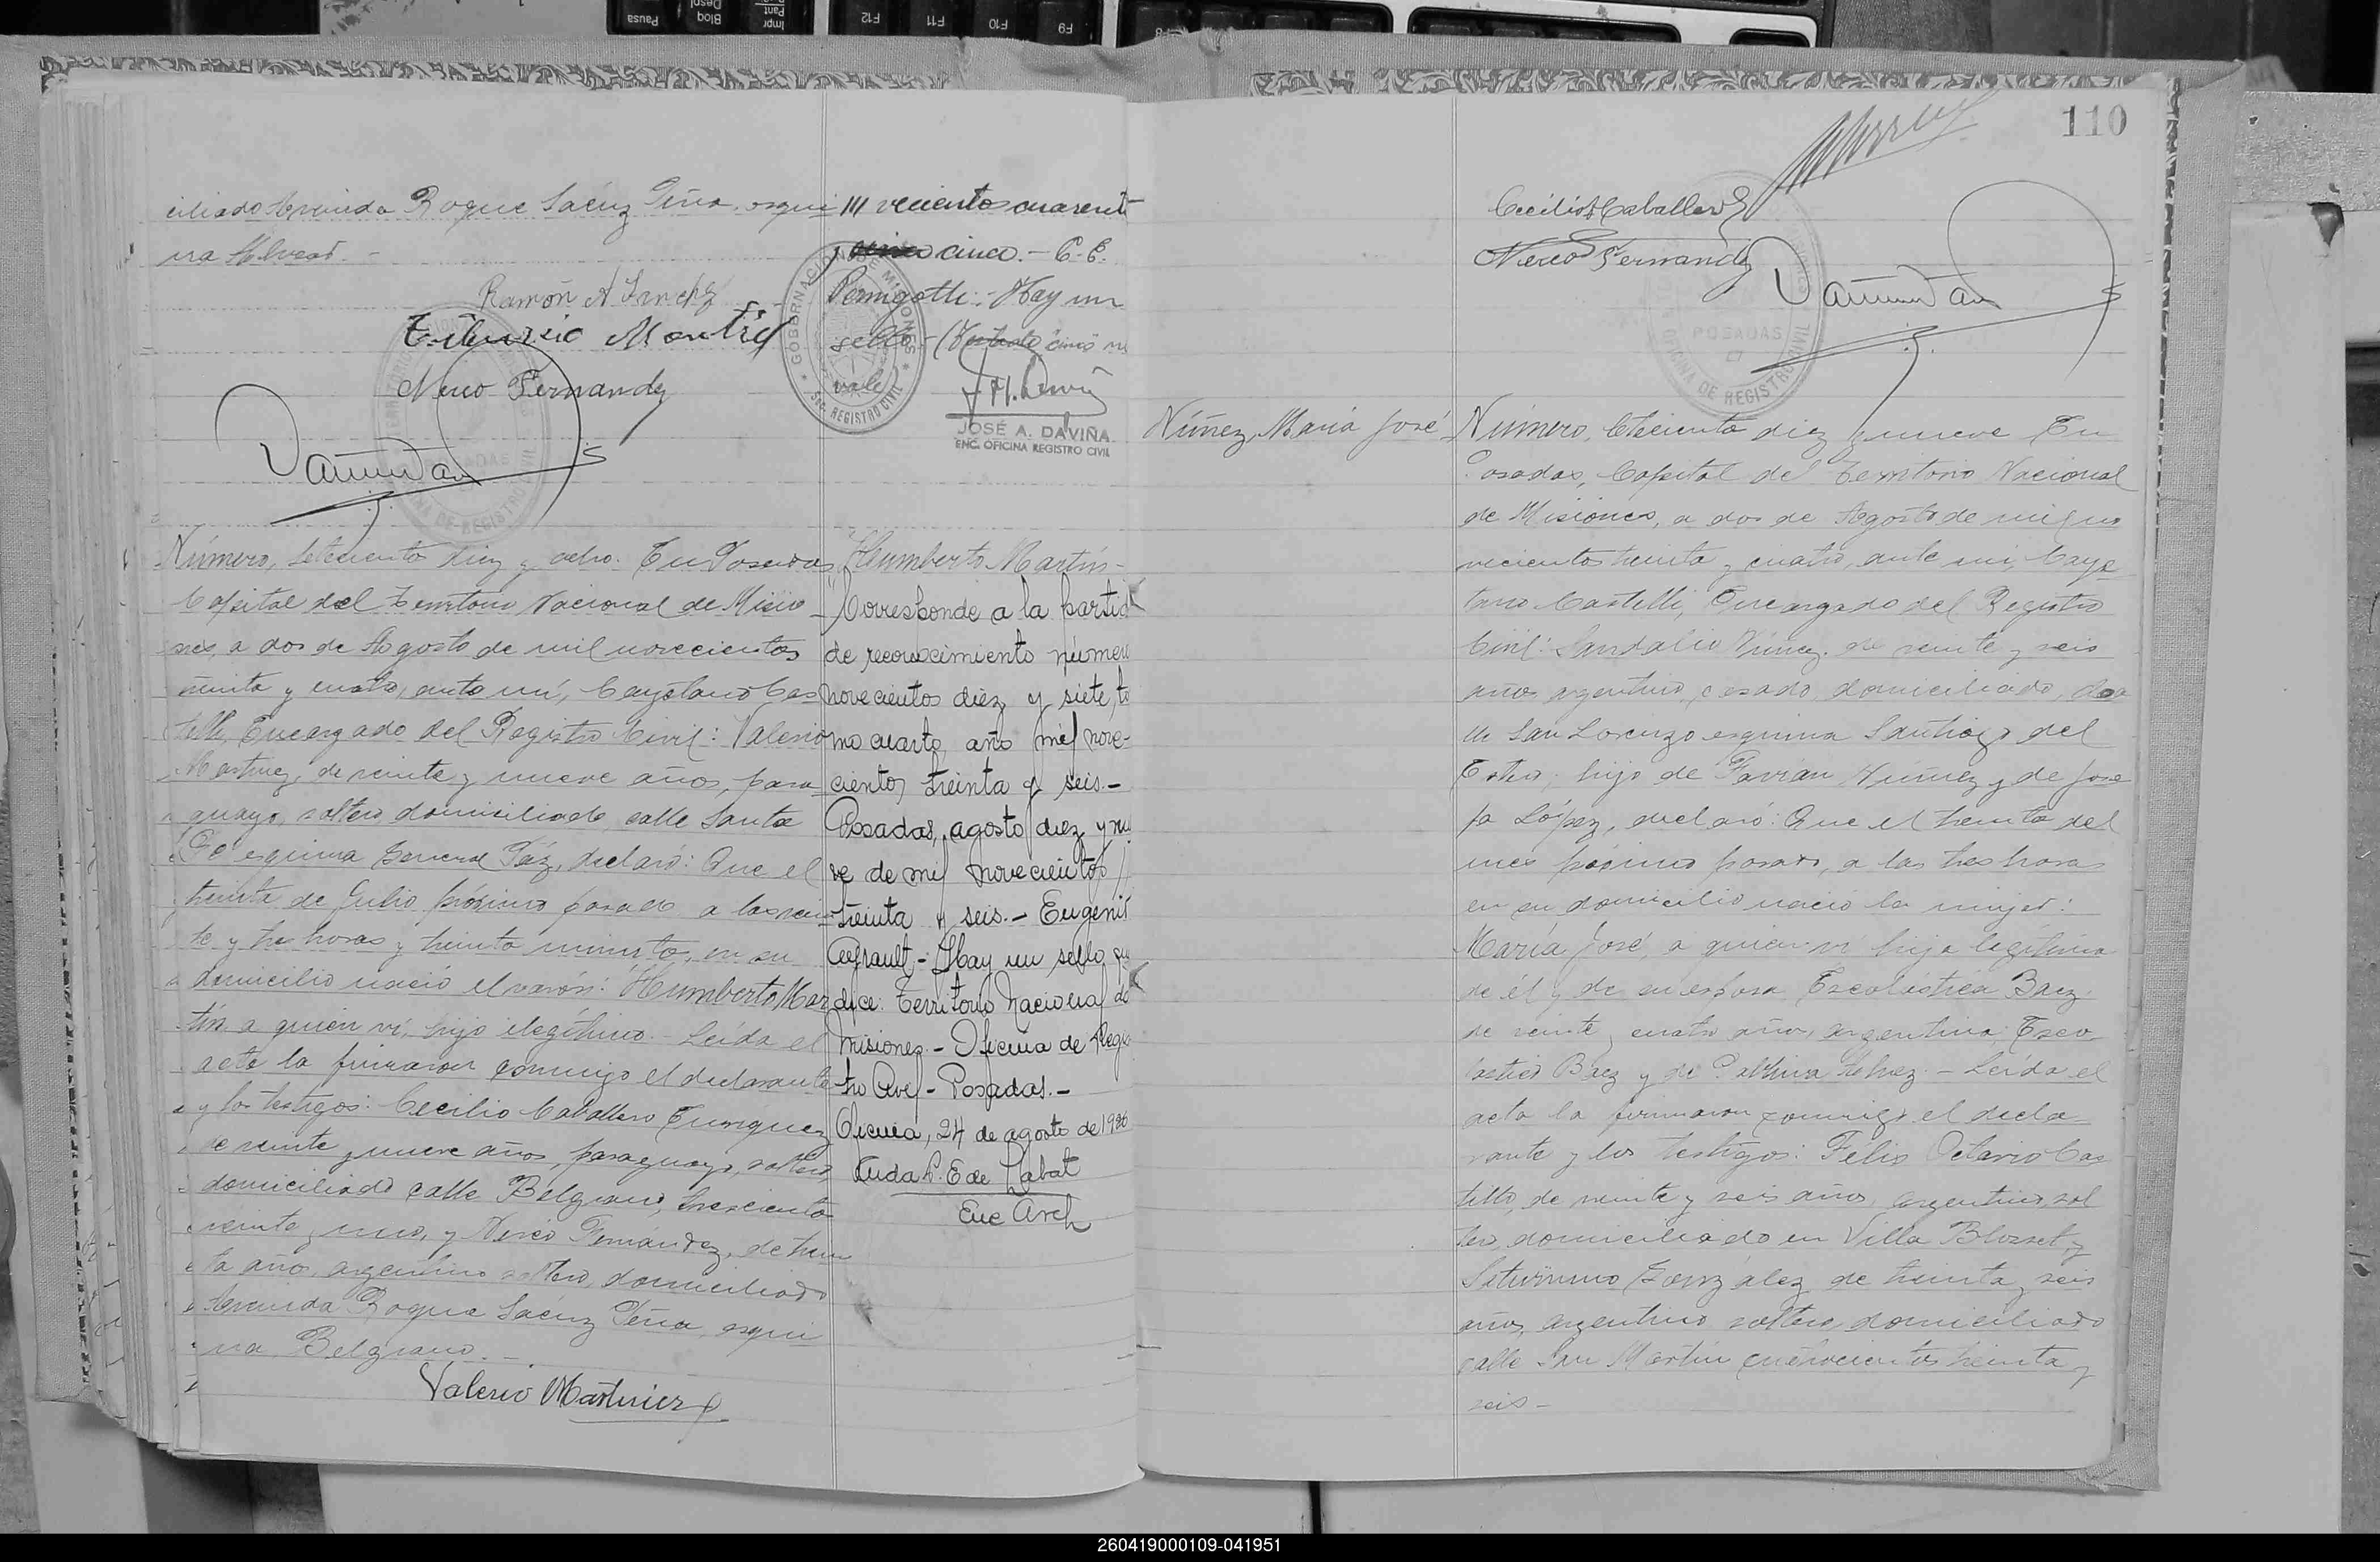 ciliado Avenida Roque Saénz Peña, esqui
na Alvear. -
Ramón A Sanchez
Tiburcio
Nereo Fernandez
Número, setecientos diez y ocho. En Posadas
Capital del Territorio Nacional de Misio
nes, a dos de Agosto de mil novecientos
treinta y cuatro, ante mí, Cayetano Cas
telli, Encargado del Registro Civil: Valerio
Martinez, de veinte y nueve años, para
guayo, soltero, domiciliado, calle Santa
Fe esquina General Páz, declaró: Que el
treinta de Julio próximo pasado a las vein
te y tres horas y treinta minutos, en su
domicilio nació el varón: Humberto Mar
tín, a quien vi, hijo ilegítimo. - Leída el
acta la firmaron conmigo el declarante
y los testigos: Cecilio Caballero
de veinte y nueve años, paraguayo, soltero,
domiciliado calle Belgrano, trescientos
veinte y uno, y Nereo Fernández, de trein
ta años, argentino soltero, domiciliado
Avenida Roque Saénz Peña, esqui
na Belgrano. -
Valerio Martinez
vecientos cuarenta
y cinco. - C. E.
Pernigotti - Hay un
sello -
vale
GOBERNACION MISIONES
Sec. REGISTRO CIVIL
JOSÉ A. DAVIÑA
ENC. OFICINA REGISTRO CIVIL
Humberto Martín -
Corresponde a la partid
de reconocimiento númer
novecientos diez y siete, to
mo cuarto, año mil nove-
cientos treinta y seis. -
Posadas, agosto diez y nu
ve de mil novecientos
treinta y seis. - Eugenio
- Hay un sello qu
dice: Territorio Nacional de
Misiones - Oficina de Regis
tro Civil - Posadas. -
Oficina, 24 de agosto de 1936
Labat
Enc Arch
110
Cecilio Caballero
Nereo Fernandez
POSADAS
OFICINA DE REGISTRO CIVIL
Núñez, María José
Número, setecientos diez y nueve En
Posadas, Capital del Territorio Nacional
de Misiones, a dos de Agosto de mil no
vecientos treinta y cuatro, ante mí, Caye
tano Castelli, Encargado del Registro
Civil: Sandalio Núnez, de veinte y seis
años, argentino, casado, domiciliado, calle
San Lorenzo esquina Santiago del
Estero, hijo de Favián Nuñez y de Jose
fa López, declaró: Que el treinta del
mes próximo pasado, a las tres horas
en su domicilio nació la mujer:
María José, a quien vi hija legítima
de él y de su esposa Escolástica Baez
de veinte y cuatro años, argentina,
Baez y de
acta la firmaron conmigo el decla
rante y los testigos: Félix Octavio Cas
tillo, de veinte y seis años, argentino, sol
tero, domiciliado en Villa Blosset, y
Saturnino González de treinta y seis
años, argentino soltero, domiciliado
calle San Martín cuatrocientos treinta y
seis -
260419000109-041951